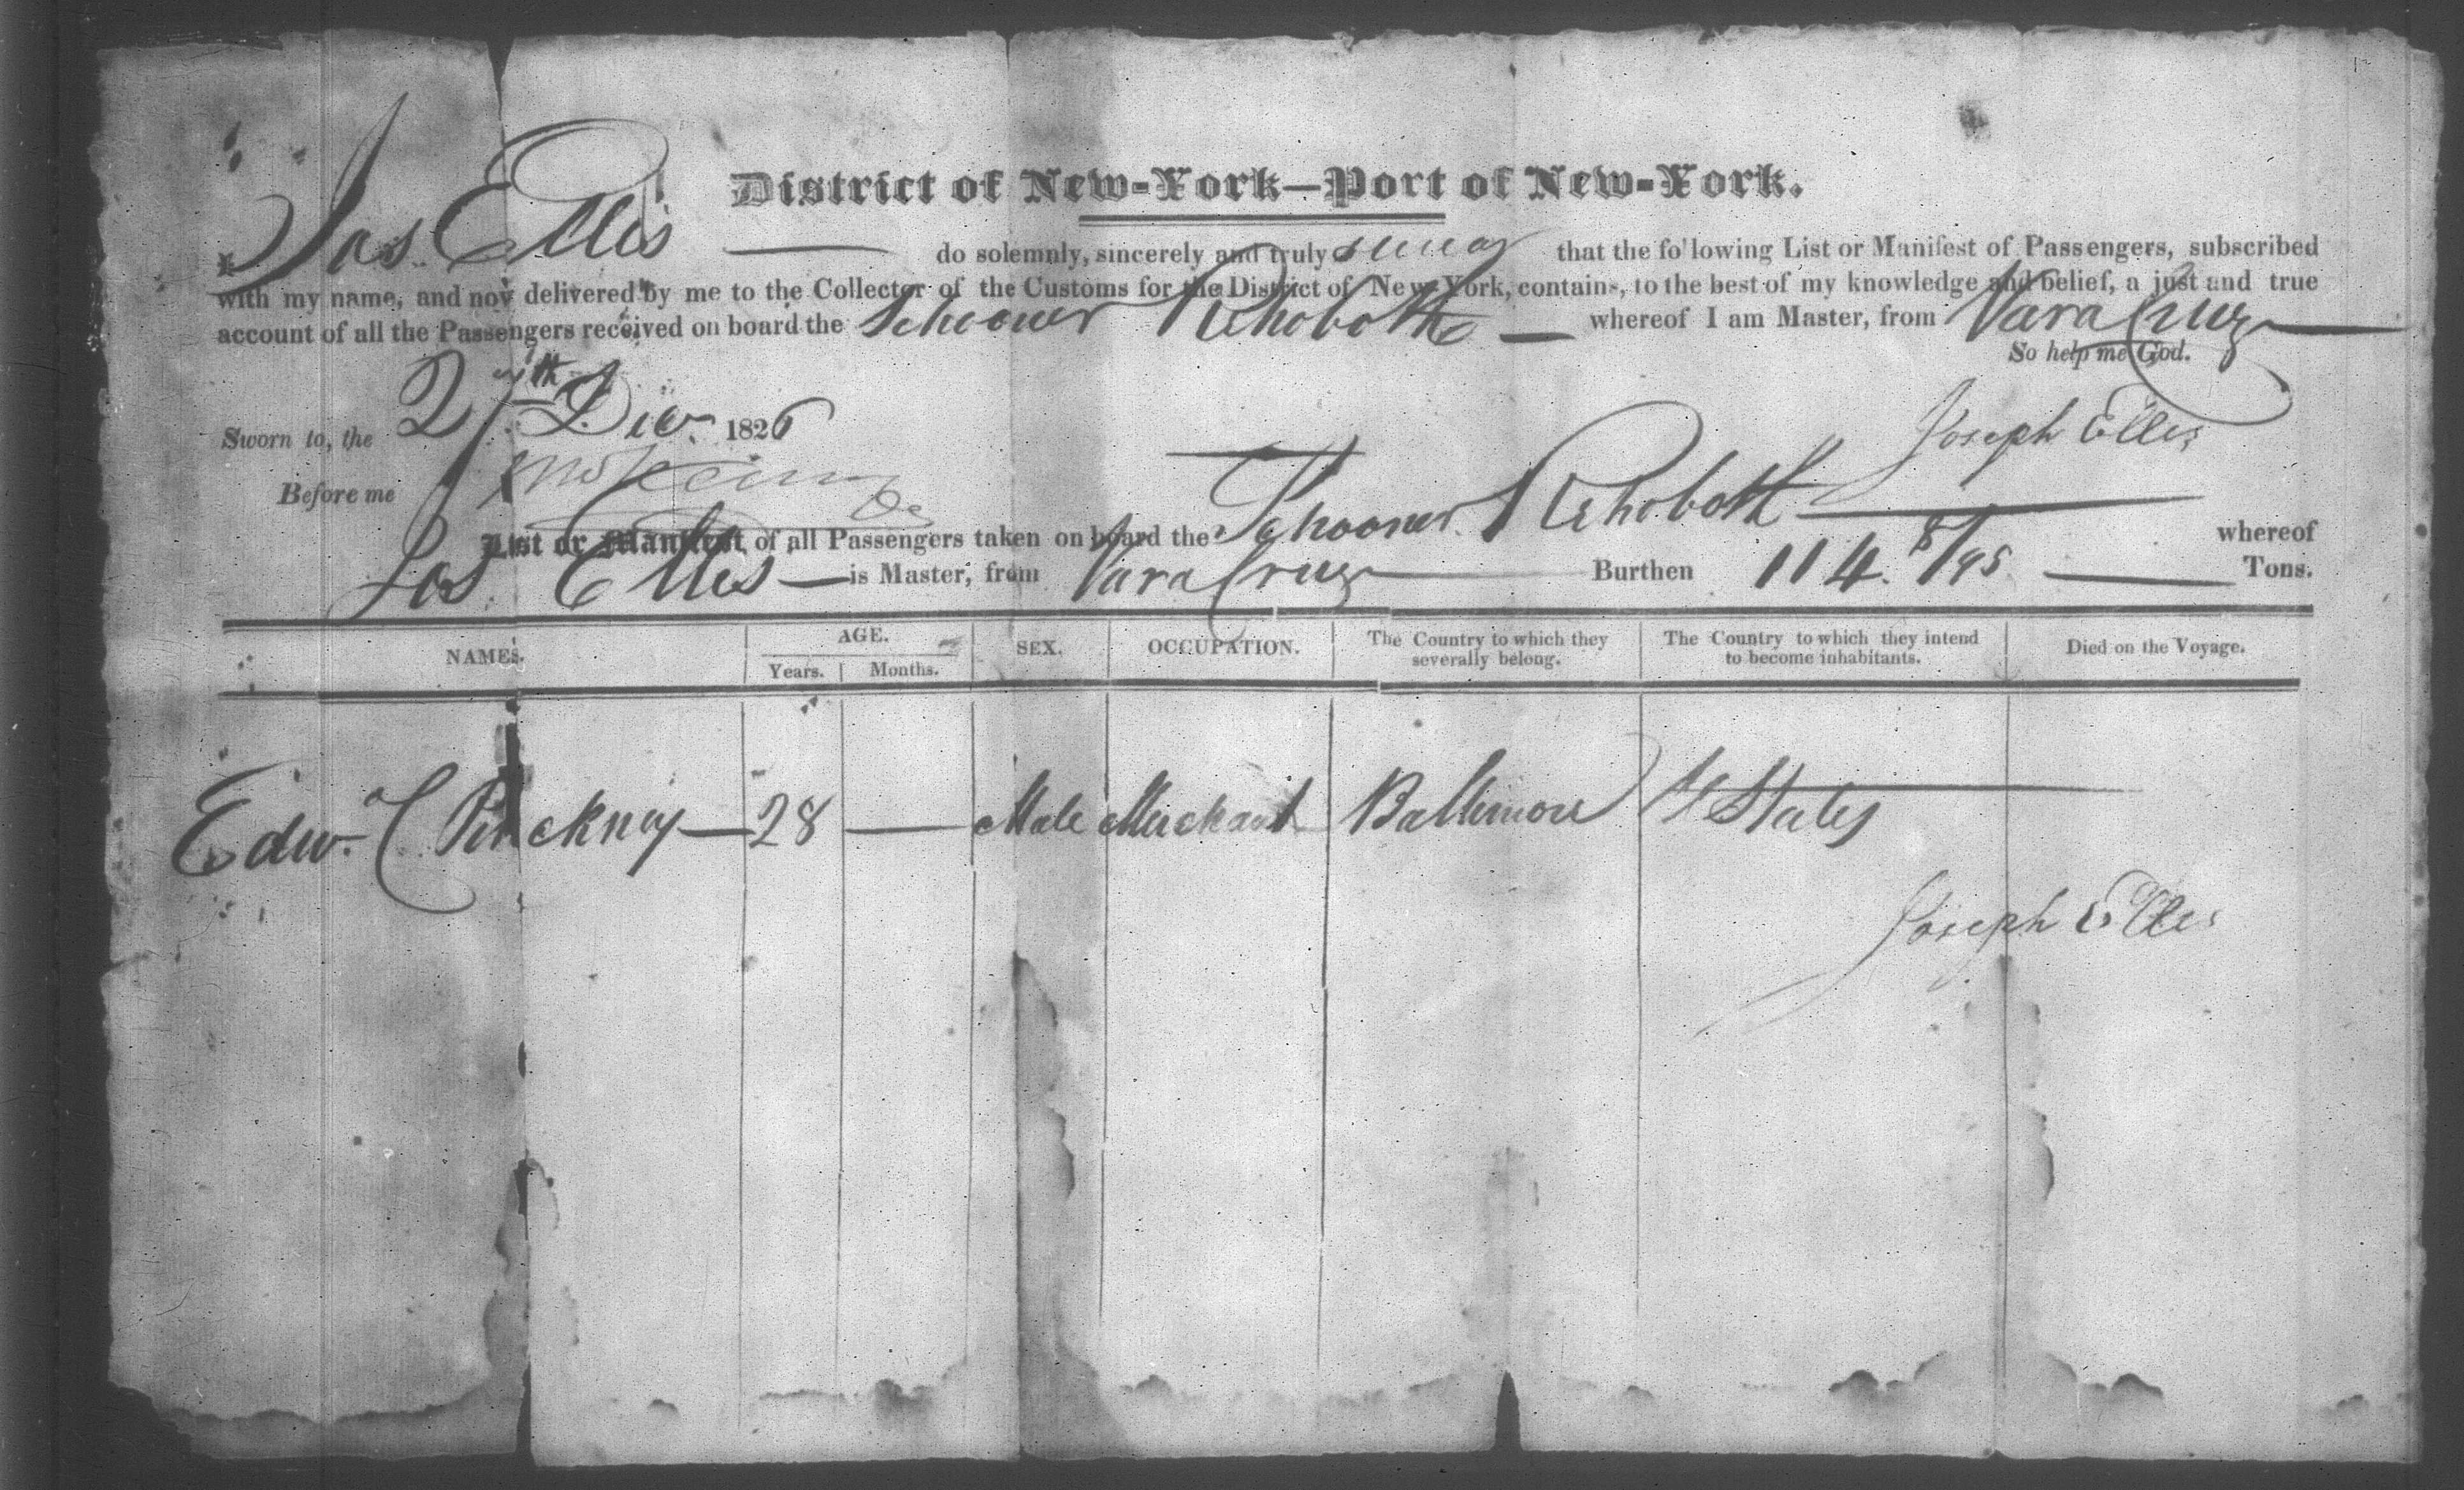 District of New-York—Port of New-York.
I, Jos. Ellis — do solemnly, sincerely and truly swear that the following List or Manifest of Passengers, subscribed
with my name, and now delivered by me to the Collector of the Customs for the District of New York, contains, to the best of my knowledge and belief, a just and true
account of all the Passengers received on board the Schooner Rehoboth — whereof I am Master, from Vara Cruz —
So help me God.
Sworn to, the 27th Decr 1826
Joseph Ellis
Before me
List or Manifest of all Passengers taken on board the Schooner Rehoboth — whereof
Jos. Ellis — is Master, from Vara Cruz — Burthen 114. 8/95 — Tons.
NAMES. AGE. SEX. OCCUPATION. The Country to which they severally belong. The Country to which they intend to become inhabitants. Died on the Voyage.
Years. Months.
Edw. C Pinckney — 28 — Male Merchant Baltimore U States
Joseph Ellis